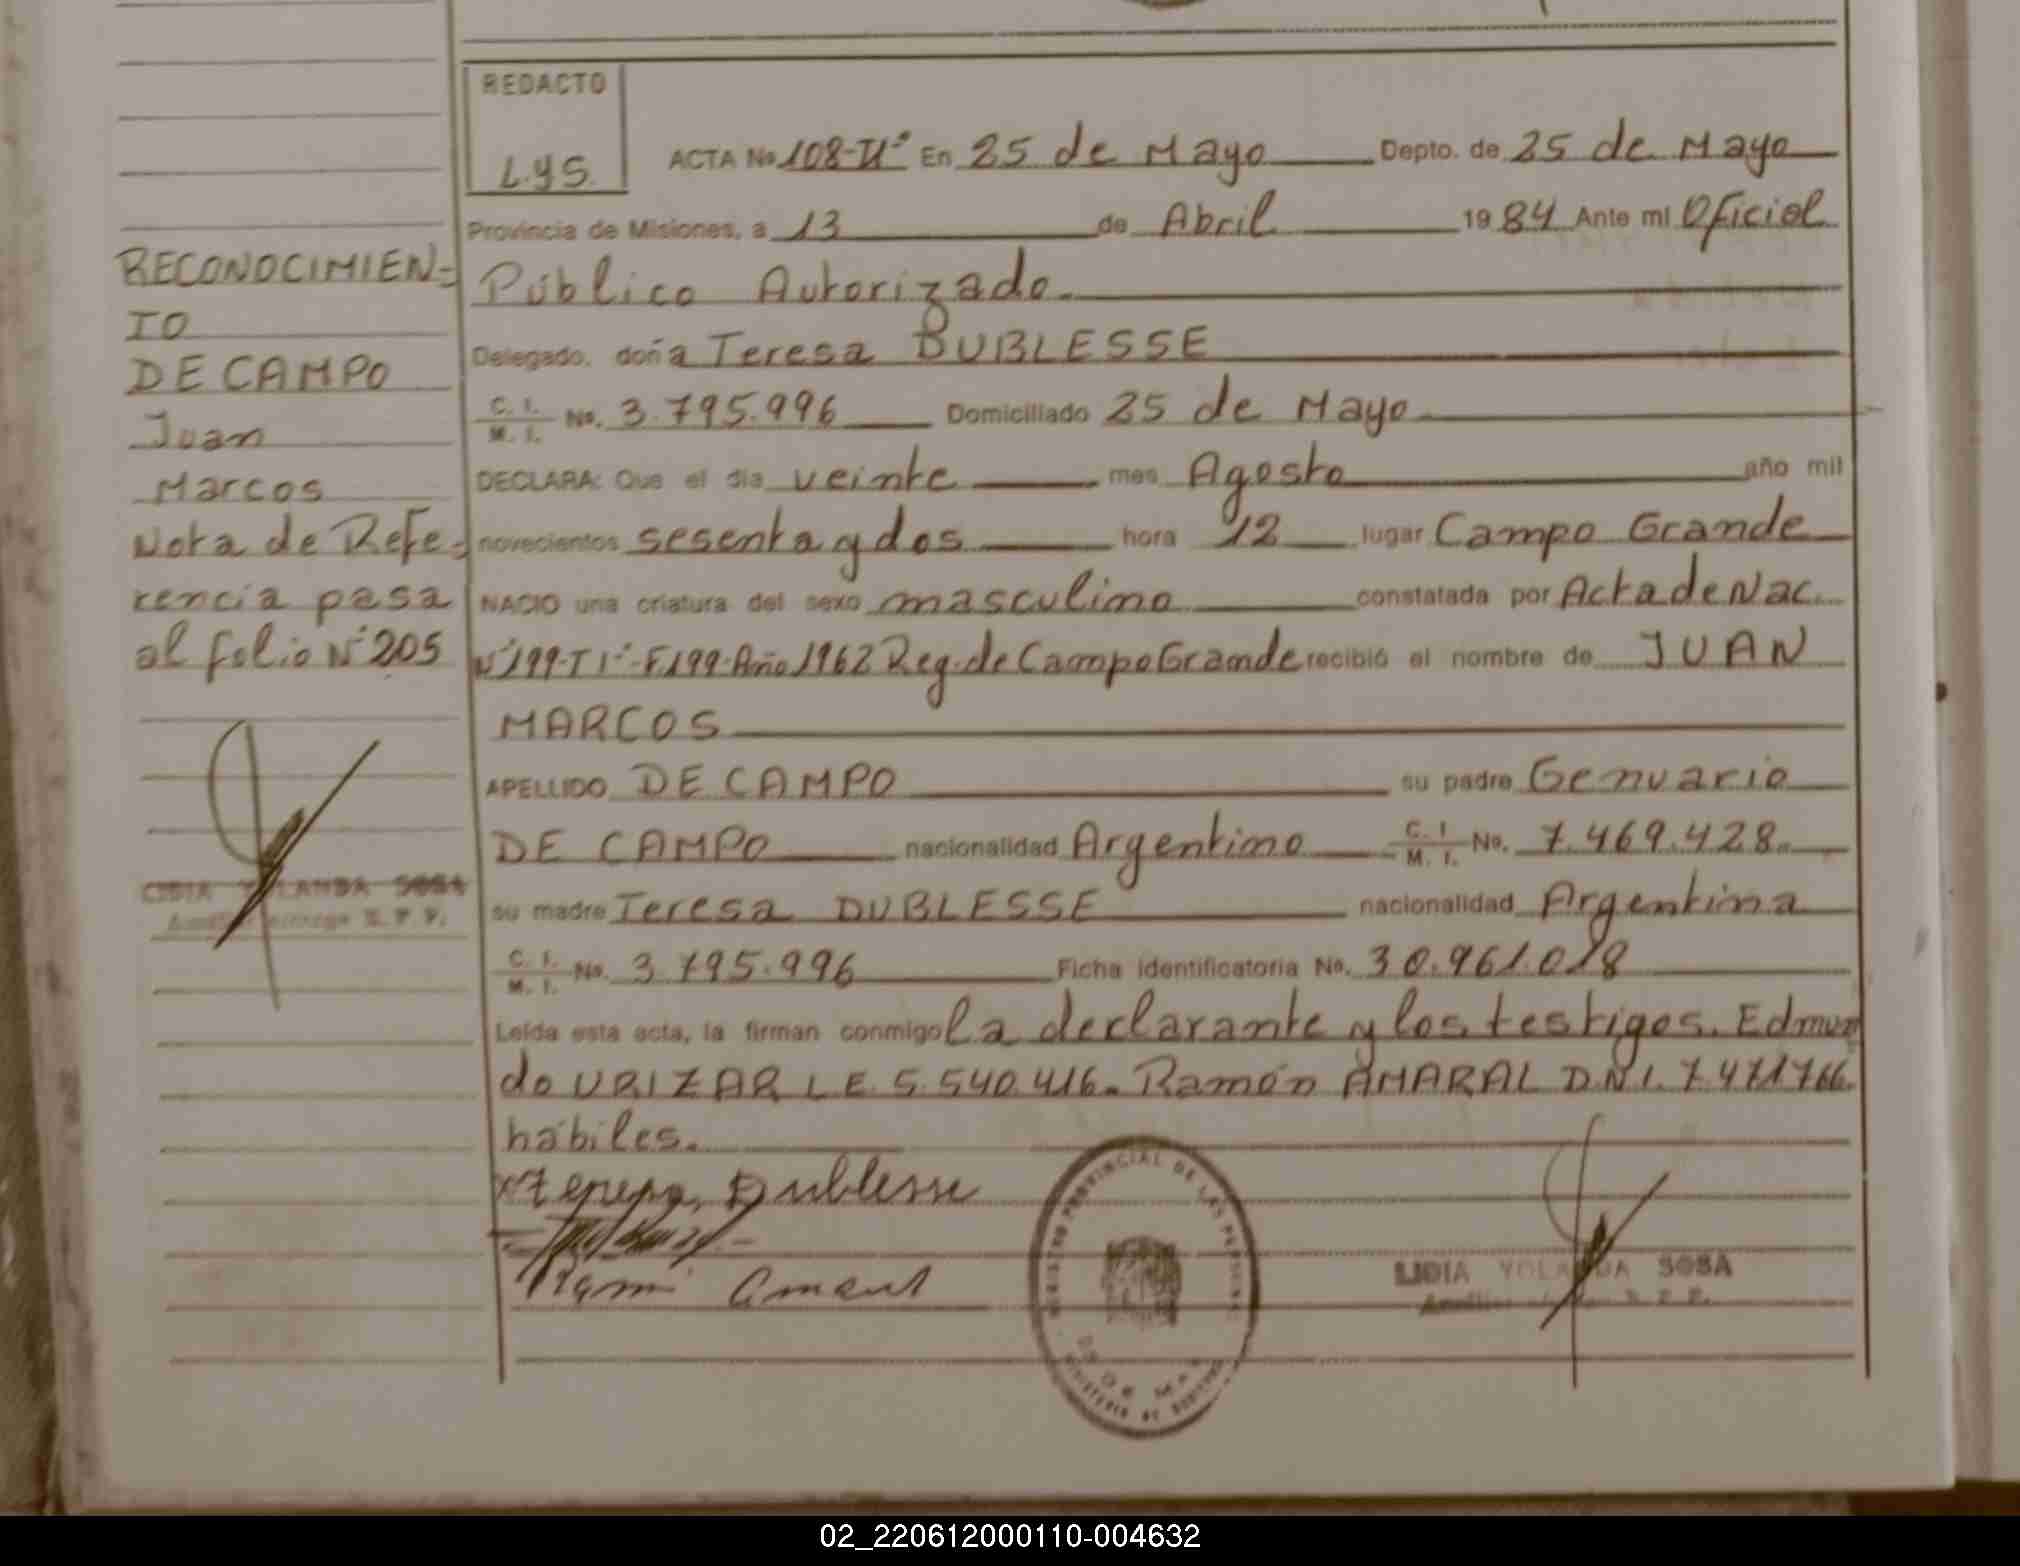 REDACTO
L.Y.S.
ACTA No 108-TI° En 25 de Mayo Depto. de 25 de Mayo
Provincia de Misiones, a 13 de Abril 1984 Ante mi Oficial
Público Autorizado.
Delegado, doña Teresa DUBLESSE
C. I. M. I. No. 3.795.996 Domiciliado 25 de Mayo
DECLARA: Que el dia veinte mes Agosto año mil
novecientos sesenta y dos hora 12 lugar Campo Grande
NACIO una criatura del sexo masculino constatada por Acta de Nac.
N°199-TI°-F.199-Año 1962 Reg. de Campo Grande recibió el nombre de JUAN
MARCOS
APELLIDO DE CAMPO su padre Genuario
DE CAMPO nacionalidad Argentino C. I. M. I. No. 7.469.428.
su madre Teresa DUBLESSE nacionalidad Argentina
C. I. M. I. No. 3.795.996 Ficha identificatoria No. 30.961.018
Leída esta acta, la firman conmigo la declarante y los testigos. Edmun
do URIZAR L.E. 5.540.416. Ramón AMARAL D.N.I. 7.471766.
hábiles.
Dublesse
LIDIA YOLANDA SOSA
REGISTRO PROVINCIAL DE LAS PERSONAS
25 DE MAYO
MINISTERIO DE GOBIERNO
RECONOCIMIEN-
TO
DE CAMPO
Juan
Marcos
Nota de Refe-
rencia pasa
al folio N°205
LIDIA YOLANDA SOSA
02_220612000110-004632